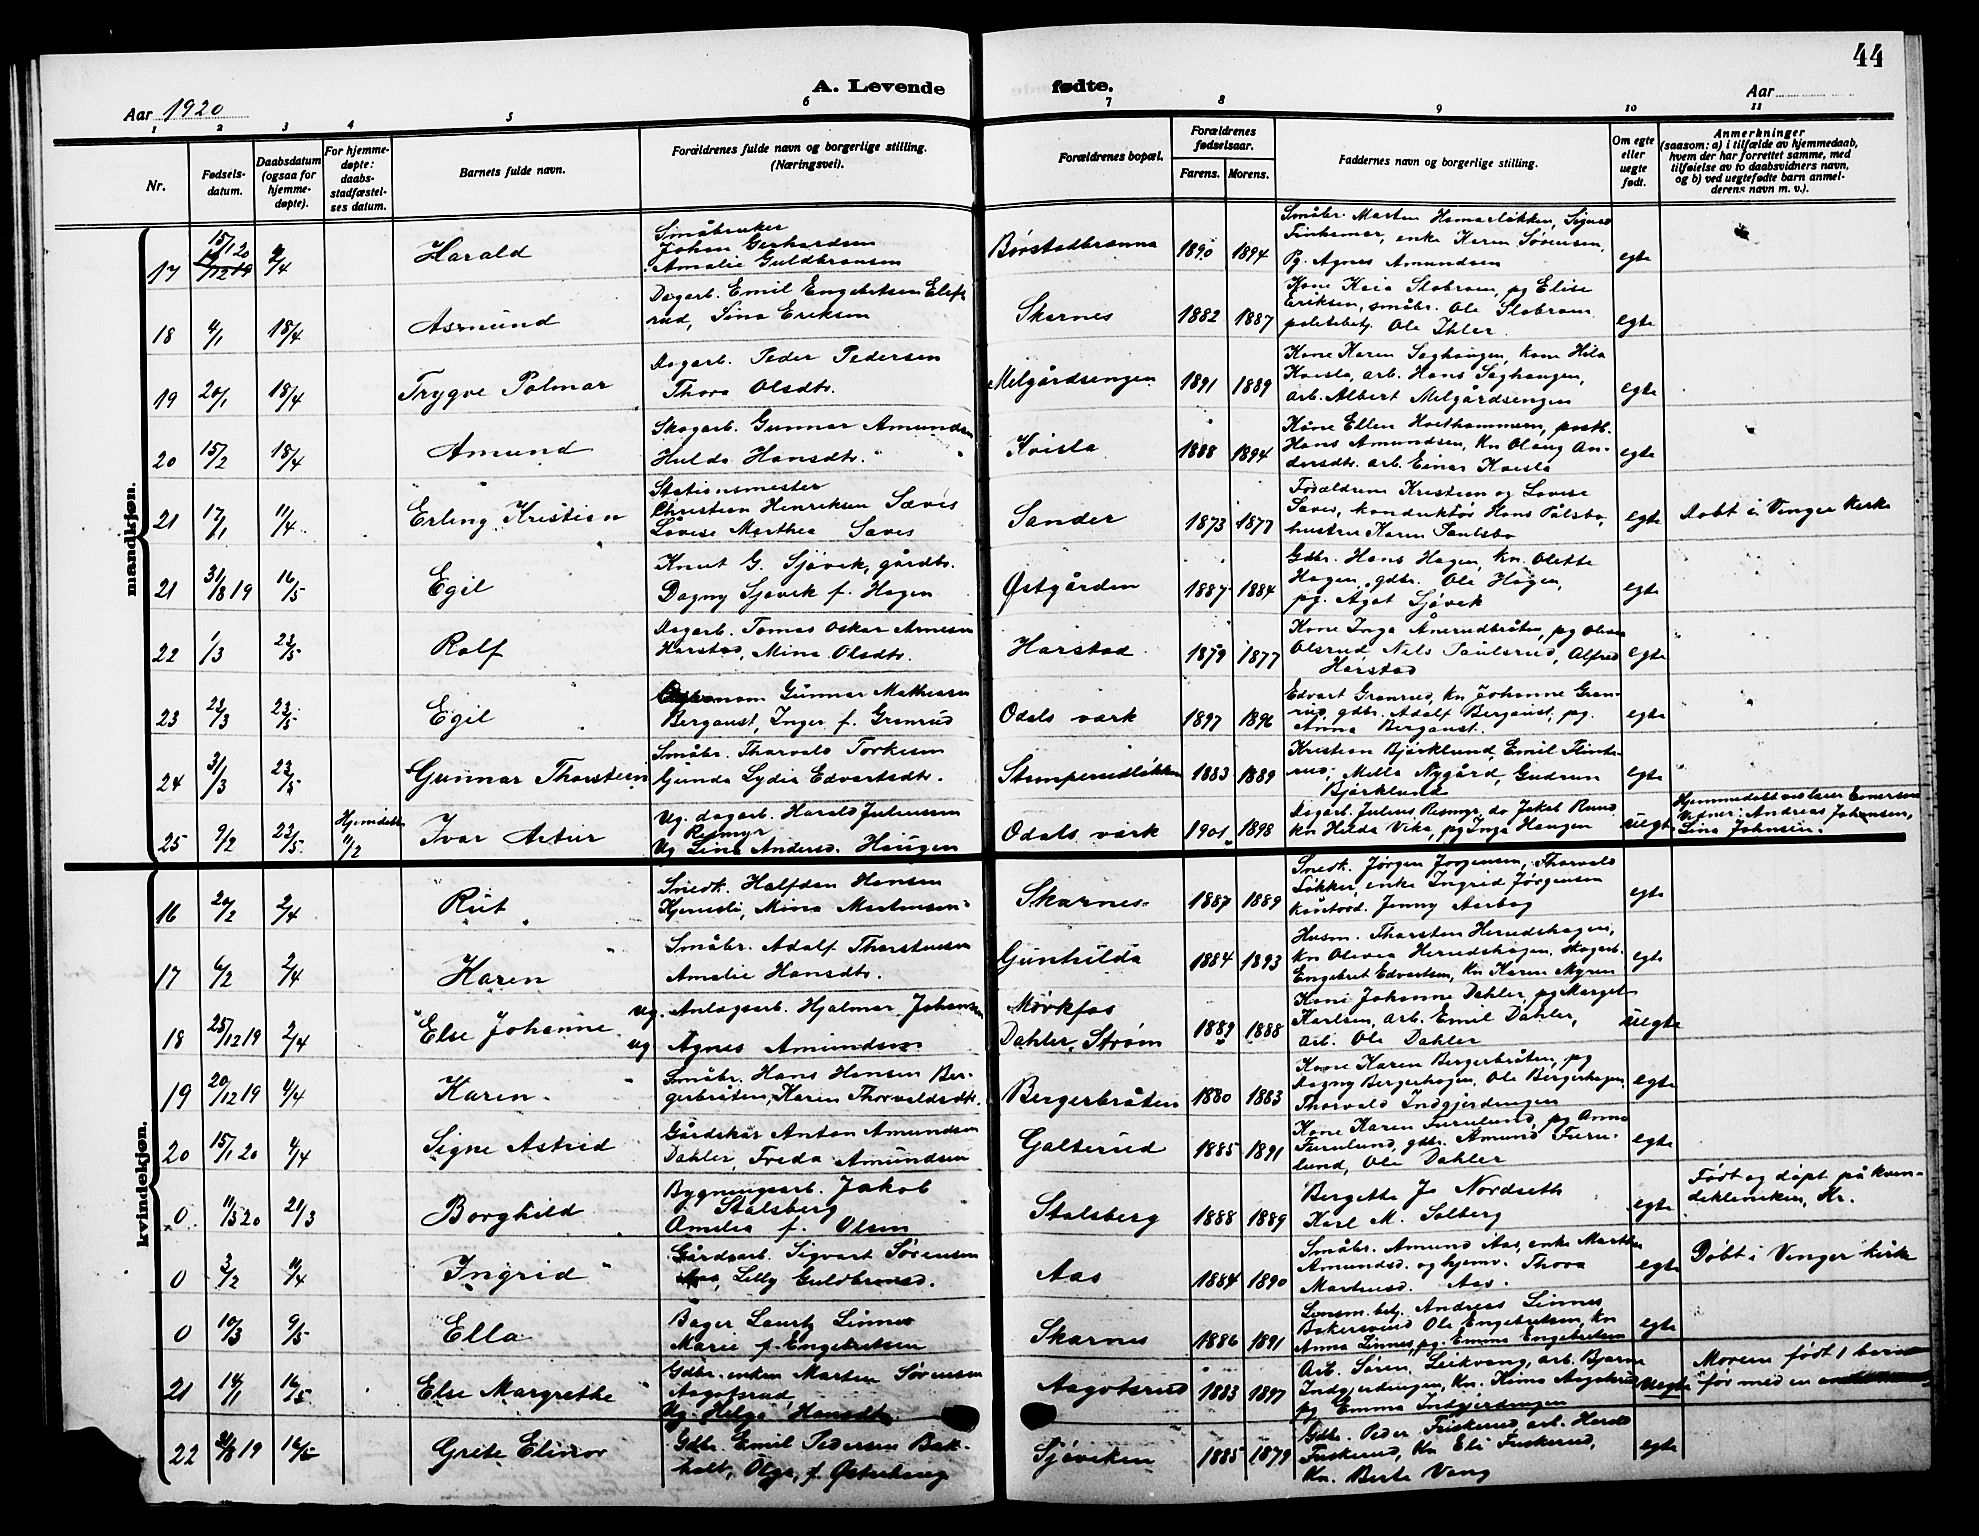 44
A. Levende fødte.
Aar 1920
Aar
1 2 3 4 5 6 7 8 9 10 11
Nr.
Fødsels-
datum.
Daabsdatum
(ogsaa for
hjemme-
døpte).
For hjemme-
døpte:
daabs-
stadfæstel-
ses datum.
Barnets fulde navn.
Forældrenes fulde navn og borgerlige stilling.
(Næringsvei).
Forældrenes bopæl.
Forældrenes
fødselsaar.
Farens. Morens.
Faddernes navn og borgerlige stilling.
Om egte
eller
uegte
født.
Anmerkninger
(saasom: a) i tilfælde av hjemmedaab,
hvem der har forrettet samme, med
tilføielse av to daabsvidners navn,
og b) ved uegtefødte barn anmel-
derens navn m. v.).
mandkjøn.
17 15/1 20 2/4 Harald
Småbruker
Johan Gerhardsen
Amalie Guldbransen
Børstadbrænna 1890 1894
Småbr. Marten Hamarløkken, Signe
enke Karen Sørensen,
Pg. Agnes Amundsen
egte
18 4/1 18/4 Asmund
Dagarb. Emil Engebretsen
rud, Sina Eriksen
Skarnes 1882 1887
Kone Kaia Slobraaen, pg Elise
Eriksen, småbr. Ole Slobraaen
politibetj. Ole Ihler.
egte
19 20/1 18/4 Trygve Palmar
Dagarb. Peder Pedersen
Thora Olsdtr.
Melgårdsengen 1891 1889
Kone Karen Saghaugen, kone Hila
Kvisla, arb. Hans Saghaugen,
arb. Albert Melgårdsengen
egte
20 15/2 18/4 Amund
Skogarb. Gunnar Amundsen
Hulda Hansdtr.
Kvisla 1888 1894
Kone Ellen Holthammern,
Hans Amundsen, Kn Olaug An-
dersdtr. arb. Einar Kvisla
egte
21 17/1 11/4 Erling Kristian
Stationsmester
Christian Henriksen Sæves
Lovise Marthea Sæves
Sander 1873 1877
Forældrene Kristian og Lovise
Sæves, konduktør Hans Pålsbo,
hustru Karen Paulsbo
egte Døbt i Vinger Kirke
21 31/8 19 16/5 Egil
Knut G. Sjøvik, gårdbr.
Dagny Sjøvik f. Hagen
Østgården 1887 1884
Gdbr. Hans Hagen, kn. Olette
Hagen, gdbr. Ole Hagen,
pg. Agot Sjøvik
egte
22 1/3 23/5 Rolf
Dagarb. Tomas Oskar Arnesen
Harstad, Mina Olsdtr.
Harstad 1879 1877
Kone Inga Ånerudbråten, pg Oliva
Olsrud, Nils Paulsrud, Alfred
Harstad
egte
23 23/3 23/5 Egil
Gunnar Mathiesen
Bergaust, Inger f. Granrud
Odals værk 1897 1896
Edvart Granrud, kn Johanne Gran-
rud, gdbr. Adolf Bergaust, pg.
Anna Bergaust.
egte
24 31/3 23/5 Gunnar Thorstein
Småbr. Thorvald Torkesen
Gunda Lydia Edvartsdtr.
Stomperudløkken 1883 1889
Kristian Bjørklund, Emil
rud, Mella Nygård, Gudrun
Bjørklund
egte
25 9/2 23/5 Hjemdøbt 11/2 Ivar Artur
Ug. dagarb. Harald Juliussen
Resmyr
Ug Lina Anders. Haugen
Odals værk 1901 1898
Dagarb. Julius Resmyr, do Jakob Rud
kn Hilda Vika, pg Inga Haugen
uegte
Hjemmedøbt ved lærer Einersen
Vidner: Andreas Johansen,
Lina Johnsen.
kvindekjøn.
16 20/2 2/4 Rut
Snedk. Halfdan Hansen
Kjerneli, Mina Martinsen
Skarnes 1887 1889
Snedk. Jørgen Jørgensen, Thorvald
Løkker, enke Ingrid Jørgensen
Jenny Aarbog
egte
17 6/2 2/4 Karen
Småbr. Adolf Thorstensen
Amalie Hansdtr.
Gunhilda 1884 1893
Husm. Thorsten Herudshagen,
kn Olivia Herudshagen, skogarb.
Engebret Edvartsen, kn Karen Myren
egte
18 25/12 19 2/4 Else Johanne
ug. Anlægsarb. Hjalmar Johansen
ug Agnes Amundsen
Mørkfos
Dahler, Strøm 1889 1888
Kone Johanne Dahler, pg Margit
Karlsen, arb. Emil Dahler,
arb. Ole Dahler
uegte
19 20/12 19 4/4 Karen
Småbr. Hans Hansen Ber-
gerbråten, Karen Thorvaldsdtr.
Bergerbråten 1880 1883
Kone Karen Bergerbråten, pg
Dagny Bergerhagen, Ole Bergerhagen,
Thorvald Indgjerdingen
egte
20 15/1 20 4/4 Signe Astrid
Gårdskar Anton Amundsen
Dahler, Freda Amundsen
Galterud 1885 1891
Kone Karen Furulund, pg Anna
Furulund, gdbr. Amund Furu-
lund, Ole Dahler
egte
0 11/3 20 21/3 Borghild
Bygningsarb. Jakob
Stalsberg
Amelia f. Olsen
Stalsberg 1888 1889
Bergette J. Nordseth
Karl M. Solberg
egte
Født og døpt på kvin-
dekliniken, Kr.
0 3/2 11/4 Ingrid
Gårdsarb. Sigvart Sørensen
Aas, Lilly Guldbrandsd.
Aas 1884 1890
Småbr. Amund Aas, enke Marthea
Amundsd. og hjemv. Thora
Martinsd. Aas.
egte
Døbt i Vinger kirke
0 10/3 9/5 Ella
Bager Lauritz Linnes
Marie f. Engebretsen
Skarnes 1886 1891
Lensm.betj. Andreas Linnes
Bakersvend Ole Engebretsen, kn
Anna Linnes, pg. Emma Engebretsen
egte
21 14/1 16/5 Else Margrethe
Gdbr. enkem. Martin Sørensen
Aagotsrud
Ug. Helga Hansdtr.
Aagotsrud 1883 1897
Arb. Søren Leikvang, arb. Bjarne
Indgjerdingen, kn. Aagotsrud
pg Emma Indgjerdingen
uegte
Moren født 1 barn
før med en
22 31/8 19 16/5 Grete Elinor
Gdbr. Emil Pedersen Bak-
holt, Olga, f. Østerhaug
Sjøviken 1885 1879
Gdbr. Peder Friskerud, arb. Harald
Fuskerud, kn Eli Fuskerud,
Kn. Berte Vang
egte